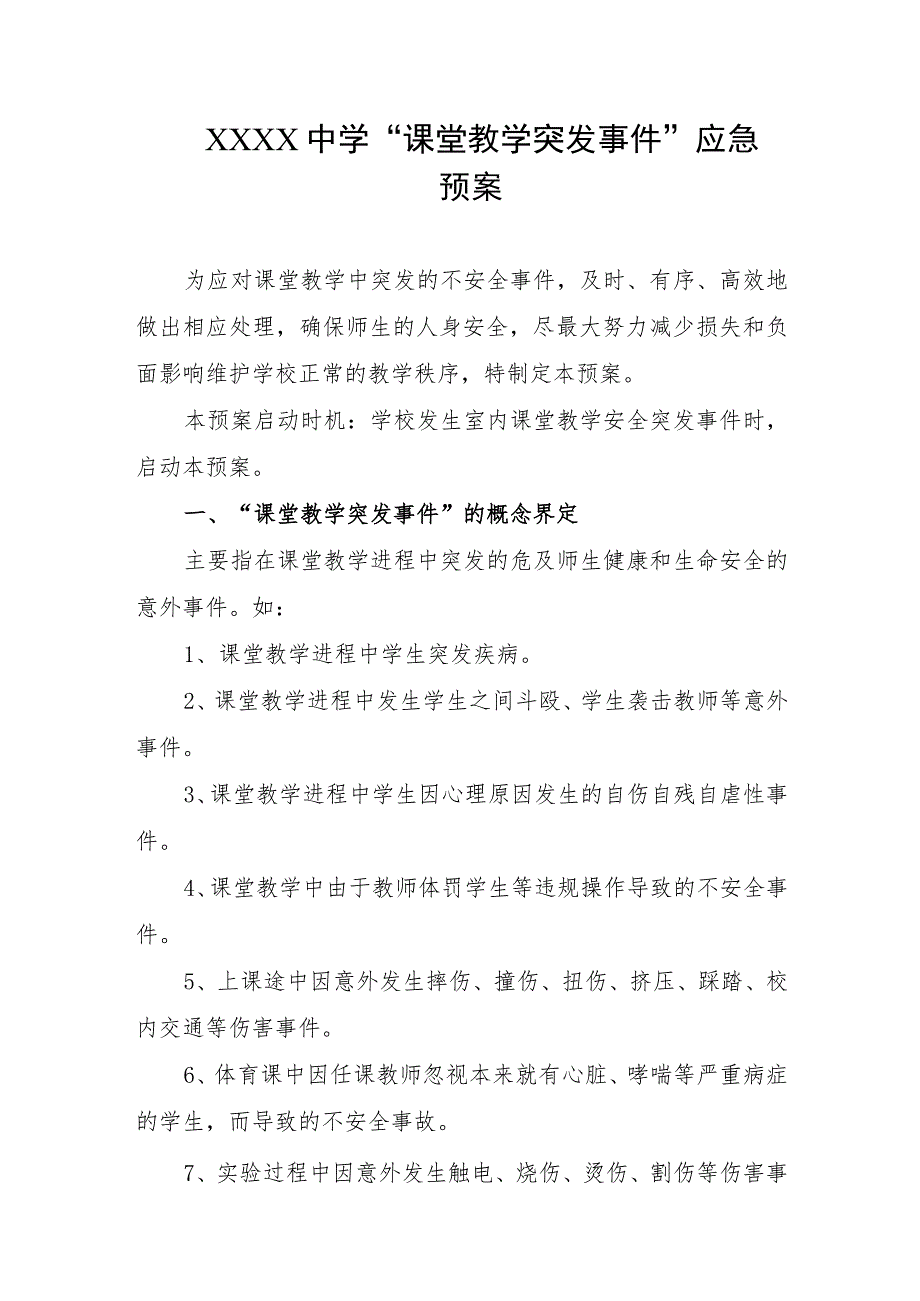 XXXX中学“课堂教学突发事件”应急
预案
为应对课堂教学中突发的不安全事件，及时、有序、高效地
做出相应处理，确保师生的人身安全，尽最大努力减少损失和负
面影响维护学校正常的教学秩序，特制定本预案。
本预案启动时机：学校发生室内课堂教学安全突发事件时，
启动本预案。
一、“课堂教学突发事件”的概念界定
主要指在课堂教学进程中突发的危及师生健康和生命安全的
意外事件。如：
1、课堂教学进程中学生突发疾病。
2、课堂教学进程中发生学生之间斗殴、学生袭击教师等意外
事件。
3、课堂教学进程中学生因心理原因发生的自伤自残自虐性事
件。
4、课堂教学中由于教师体罚学生等违规操作导致的不安全事
件。
5、上课途中因意外发生摔伤、撞伤、扭伤、挤压、踩踏、校
内交通等伤害事件。
6、体育课中因任课教师忽视本来就有心脏、哮喘等严重病症
的学生，而导致的不安全事故。
7、实验过程中因意外发生触电、烧伤、烫伤、割伤等伤害事